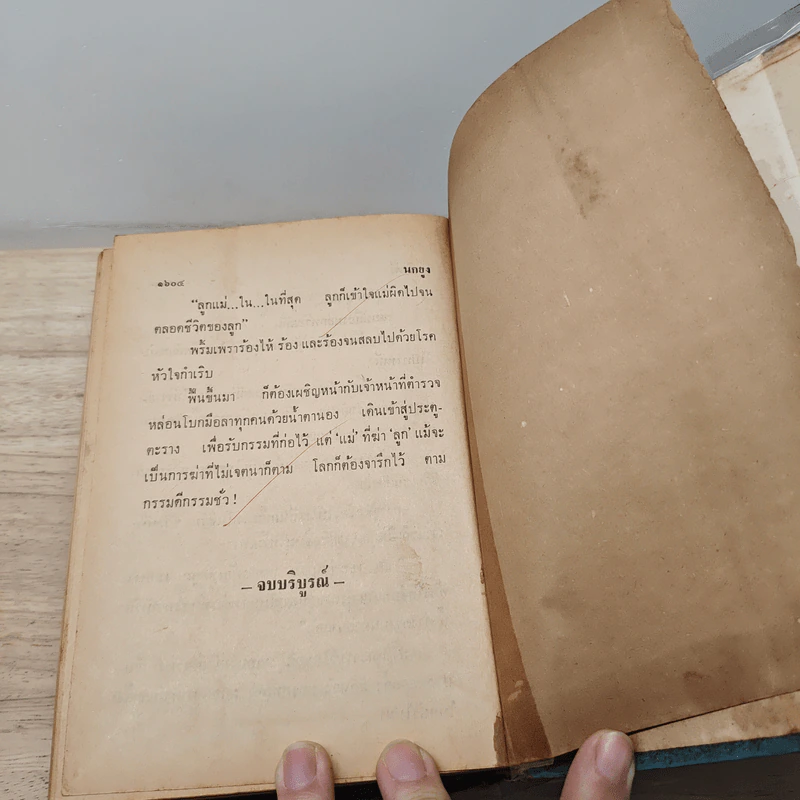 ๑๖๐๔ นกยูง
"ลูกแม่...ใน...ในที่สุด ลูกก็เข้าใจแม่ผิดไปจน
ตลอดชีวิตของลูก"
พร้มเพราร้องไห้ ร้อง และร้องจนสลบไปด้วยโรค
หัวใจกำเริบ
ฟื้นขึ้นมา ก็ต้องเผชิญหน้ากับเจ้าหน้าที่ตำรวจ
หล่อนโบกมือลาทุกคนด้วยน้ำตานอง เดินเข้าสู่ประตู-
ตะราง เพื่อรับกรรมที่ก่อไว้ แต่ 'แม่' ที่ฆ่า 'ลูก' แม้จะ
เป็นการฆ่าที่ไม่เจตนาก็ตาม โลกก็ต้องจารึกไว้ ตาม
กรรมดีกรรมชั่ว !
– จบบริบูรณ์ –